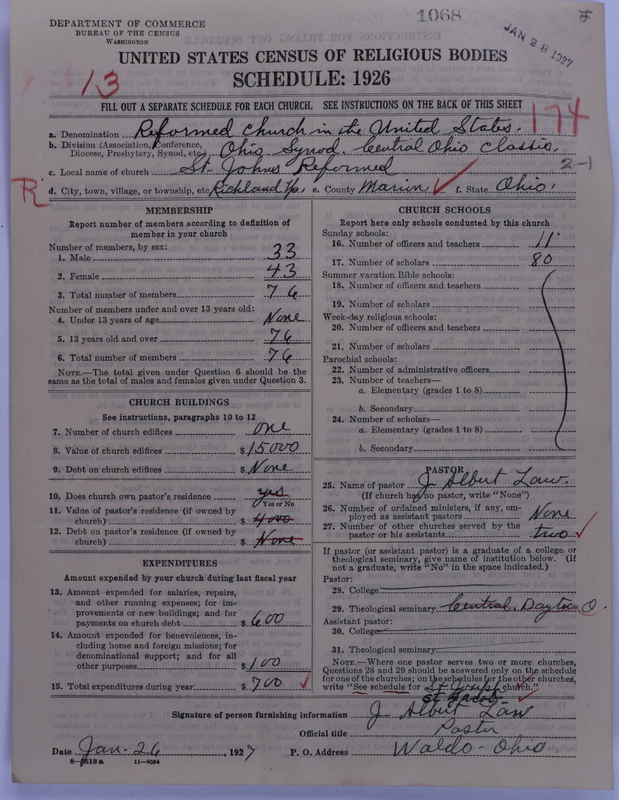 DEPARTMENT OF COMMERCE
BUREAU OF THE CENSUS
WASHINGTON
1068
JAN 28 1927
UNITED STATES CENSUS OF RELIGIOUS BODIES
SCHEDULE: 1926
13
FILL OUT A SEPARATE SCHEDULE FOR EACH CHURCH. SEE INSTRUCTIONS ON THE BACK OF THIS SHEET
174
a. Denomination Reformed Church in the United States.
b. Division (Association, Conference, Diocese, Presbytery, Synod, etc.) Ohio Synod. Central Ohio Classis.
c. Local name of church St. Johns Reformed
2-1
R
d. City, town, village, or township, etc. Richland Tp. e. County Marion f. State Ohio.
MEMBERSHIP
Report number of members according to definition of
member in your church
Number of members, by sex:
1. Male 33
2. Female 43
3. Total number of members 76
Number of members under and over 13 years old:
4. Under 13 years of age None
5. 13 years old and over 76
6. Total number of members 76
NOTE.—The total given under Question 6 should be
same as the total of males and females given under Question 3.
CHURCH BUILDINGS
See instructions, paragraphs 10 to 12
7. Number of church edifices one
8. Value of church edifices $15000
9. Debt on church edifices $None
10. Does church own pastor's residence yes
Yes or No
11. Value of pastor's residence (if owned by
church) $4000
12. Debt on pastor's residence (if owned by
church) $None
EXPENDITURES
Amount expended by your church during last fiscal year
13. Amount expended for salaries, repairs,
and other running expenses; for im-
provements or new buildings; and for
payments on church debt $600
14. Amount expended for benevolences, in-
cluding home and foreign missions; for
denominational support; and for all
other purposes $100
15. Total expenditures during year $700
CHURCH SCHOOLS
Report here only schools conducted by this church
Sunday schools:
16. Number of officers and teachers 11
17. Number of scholars 80
Summer vacation Bible schools:
18. Number of officers and teachers
19. Number of scholars
Week-day religious schools:
20. Number of officers and teachers
21. Number of scholars
Parochial schools:
22. Number of administrative officers
23. Number of teachers—
a. Elementary (grades 1 to 8)
b. Secondary
24. Number of scholars—
a. Elementary (grades 1 to 8)
b. Secondary
PASTOR
25. Name of pastor J. Albert Law.
(If church has no pastor, write "None")
26. Number of ordained ministers, if any, em-
ployed as assistant pastors None
27. Number of other churches served by the
pastor or his assistants two
If pastor (or assistant pastor) is a graduate of a college or
theological seminary, give name of institution below. (If
not a graduate, write "No" in the space indicated.)
Pastor:
28. College
29. Theological seminary Central, Dayton O.
Assistant pastor:
30. College
31. Theological seminary
NOTE.—Where one pastor serves two or more churches,
Questions 28 and 29 should be answered only on the schedule
for one of the churches; on the schedules for the other churches,
write "See schedule for St. Joseph church."
St. Jacob
Signature of person furnishing information J. Albert Law
Official title Pastor
Date Jan. 26, 1927 P. O. Address Waldo - Ohio
8-6618 a 11-9084